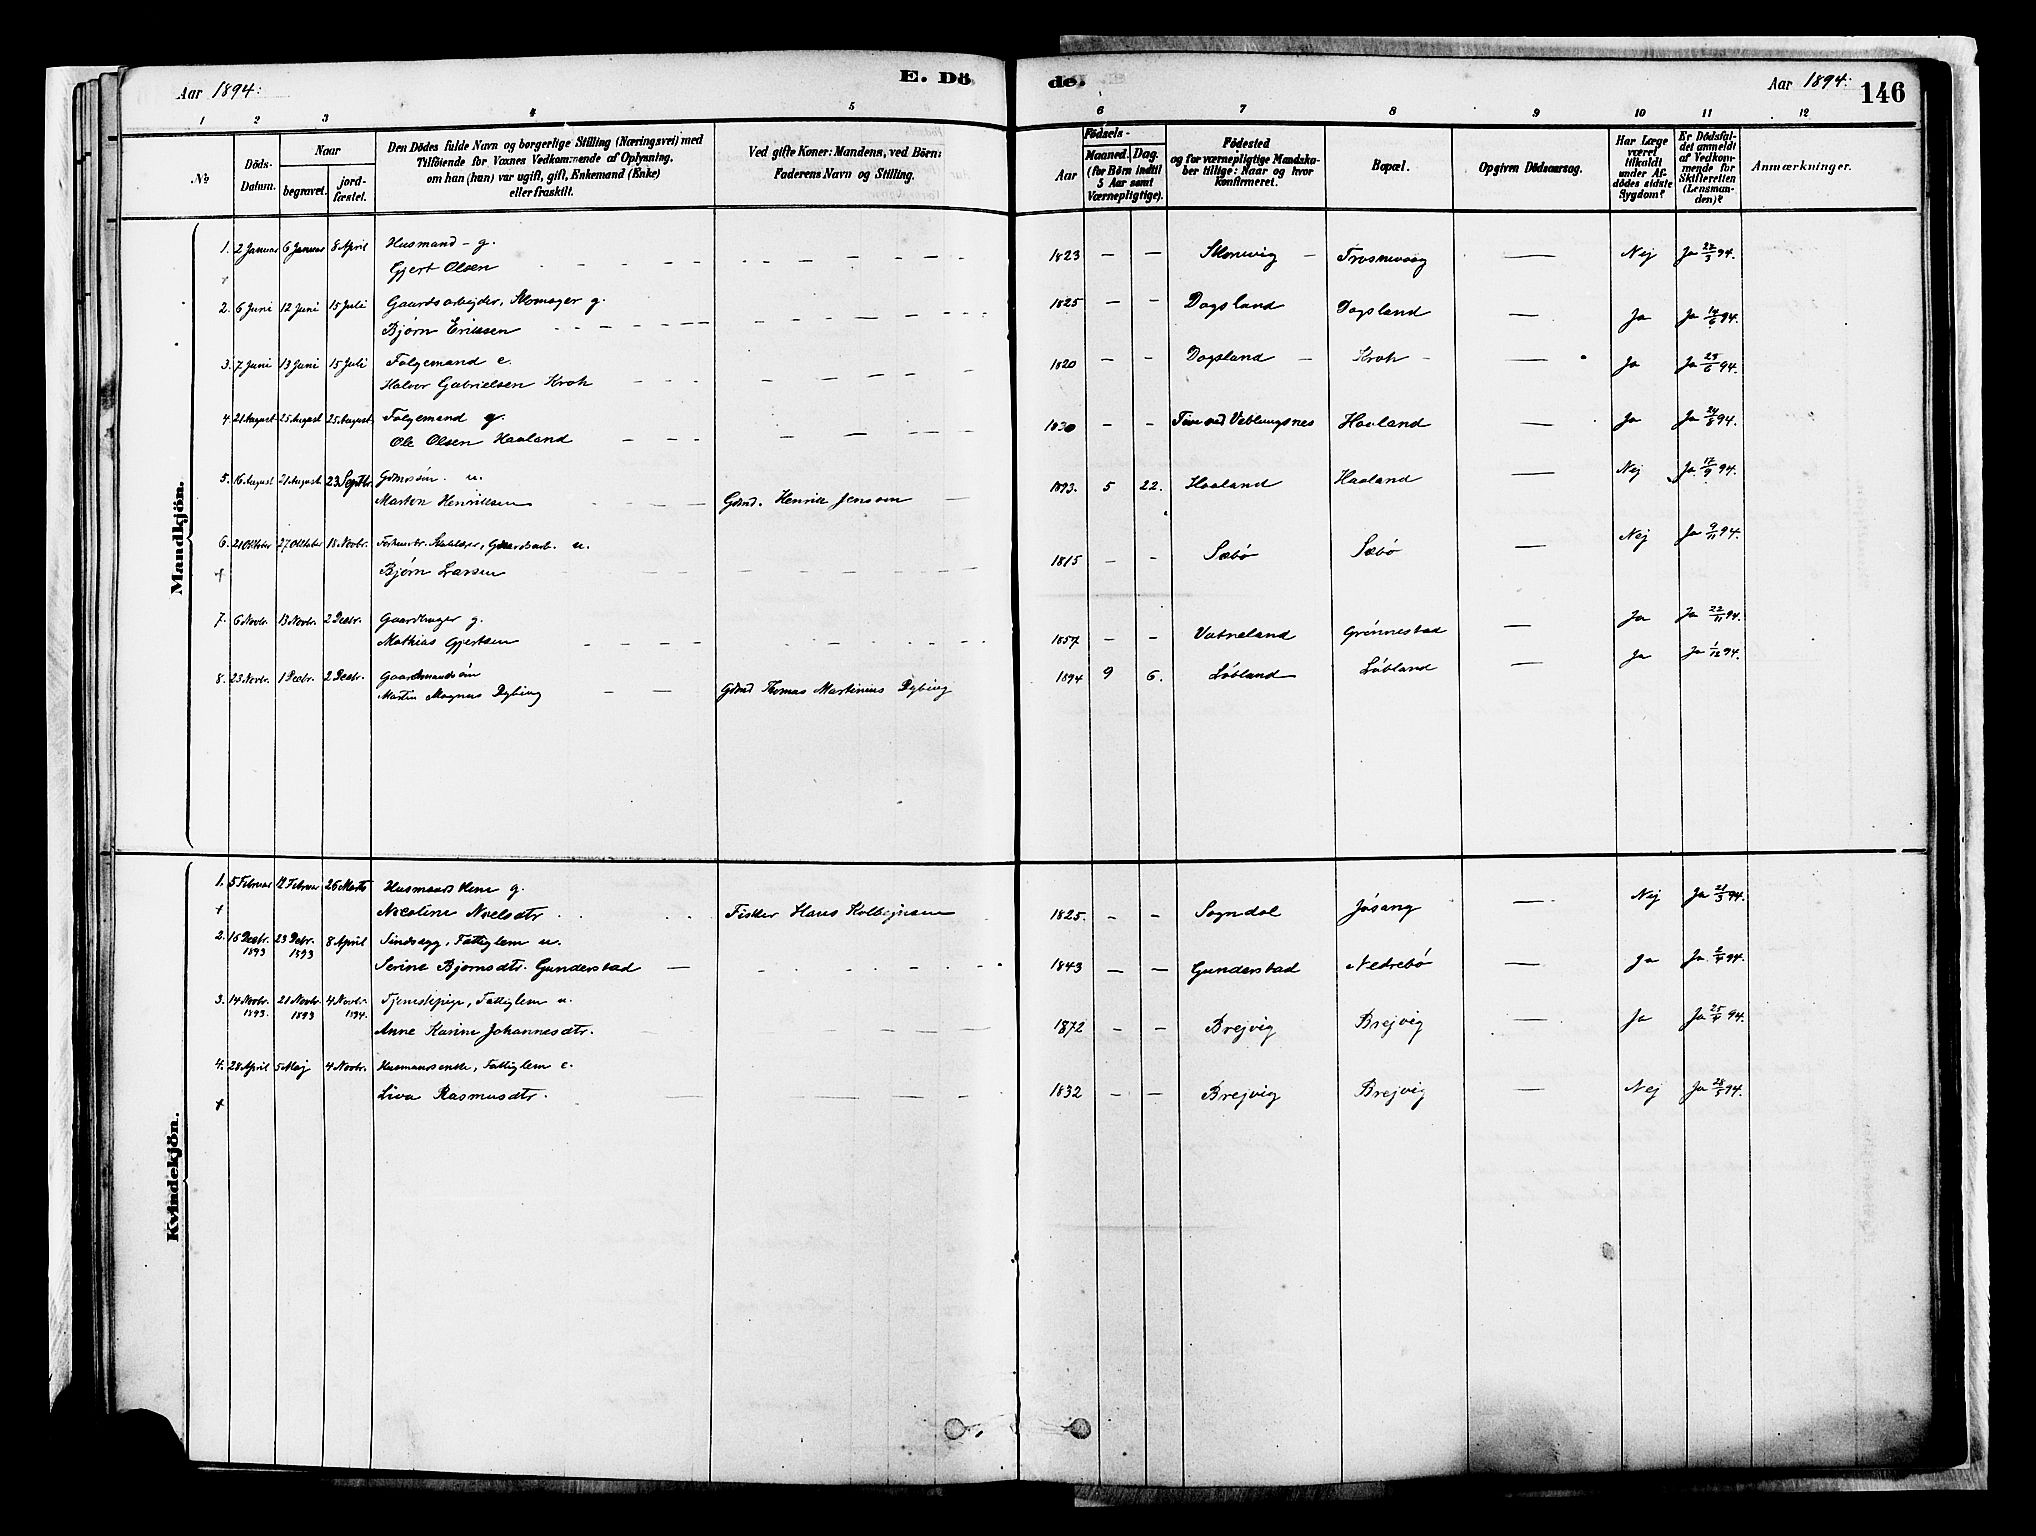 Aar 1894.
E. Dö
de.
Aar 1894.
146
1 2 3 4 5 6 7 8 9 10 11 12
No
Döds-Datum.
Naar
begravet.
jord-fæstet.
Den Dödes fulde Navn og borgerlige Stilling (Næringsvei) med
Tilföiende for Voxnes Vedkommende af Oplysning,
om han (hun) var ugift, gift, Enkemand (Enke)
eller fraskilt.
Ved gifte Koner: Mandens, ved Börn:
Faderens Navn og Stilling.
Födsels-
Aar
Maaned. Dag.
(for Börn indtil
5 Aar samt
Værnepligtige).
Födested
og for værnepligtige Mandska-
ber tillige: Naar og hvor
Konfirmeret.
Bopæl.
Opgiven Dödsaarsag.
Har Læge
været
tilkaldt
under Af-
dödes sidste
Sygdom?
Er Dödsfal-
det anmeldt
af Vedkom-
mende for
Skifteretten
(Lensman-
den)?
Anmærkninger.
Mandkjön.
1. 2 Januar 6 Januar 8 April Husmand - g.
Gjert Olsen 1823 — — — Nej Ja 27/3 94.
2. 6 Juni 12 Juni 15 Juli Gaardsarbejder, Skomager g.
Bjørn Eriksen 1825 — — Dagsland Dagsland — Ja Ja 14/6 94.
3. 7 Juni 13 Juni 15 Juli Folgemand e.
Halvor Gabrielsen Kroh 1820 — — Dagsland Kroh — Ja Ja 25/6 94.
4. 21 August 25 August 25 August Folgemand g.
Ole Olsen Haaland 1830 — — Veblungsnes Haaland — Ja Ja 24/8 94.
5. 16 August 21 August 23 Septbr. Gdmssön. u.
Marton Henriksen Gdmd. Henrik Jensen 1893. 5 22. Haaland Haaland — Nej Ja 17/9 94.
6. 21 Oktober 27 Oktober 18 Novbr. Gaardsarb. u.
Bjørn Larsen 1815 — — Sæbø Sæbø — Nej Ja 9/11 94.
7. 6 Novbr. 13 Novbr. 2 Decbr. Gaardbruger g.
Mathias Gjertsen 1857 — — Vatneland Grønnestad — Ja Ja 22/11 94.
8. 23 Novbr. 1 Decbr. 2 Decbr. Gaardmandssön
Martin Magnus Dybing Gdmd Thomas Martinius Dybing 1894 9 6. Løbland Løbland — Ja Ja 1/12 94.
Kvindekjön.
1. 5 Februar 12 Februar 26 Marts Husmands Kone g.
Nicoline Noelsdtr Fisker Hans 1825. — — Sogndal Jøsang — Nej Ja 21/3 94.
2. 16 Decbr. 1893 23 Decbr. 1893 8 April Sindssyg, Fattiglem u.
Serine Bjørnsdtr. Gunderstad 1843 — — Gunderstad Nedrebø — Ja Ja 2/4 94.
3. 14 Novbr. 1893. 21 Novbr. 1893 4 Novbr. 1894. Tjenestepige, Fattiglem u.
Anne Karine Johannesdtr. 1872 — — Brejvig Brejvig — Ja Ja 25/4 94.
4. 28 April 5 Maj 4 Novbr. Husmandsenke, Fattiglem e.
Liva Rasmusdtr. 1832 — — Brejvig Brejvig — Nej Ja 28/5 94.